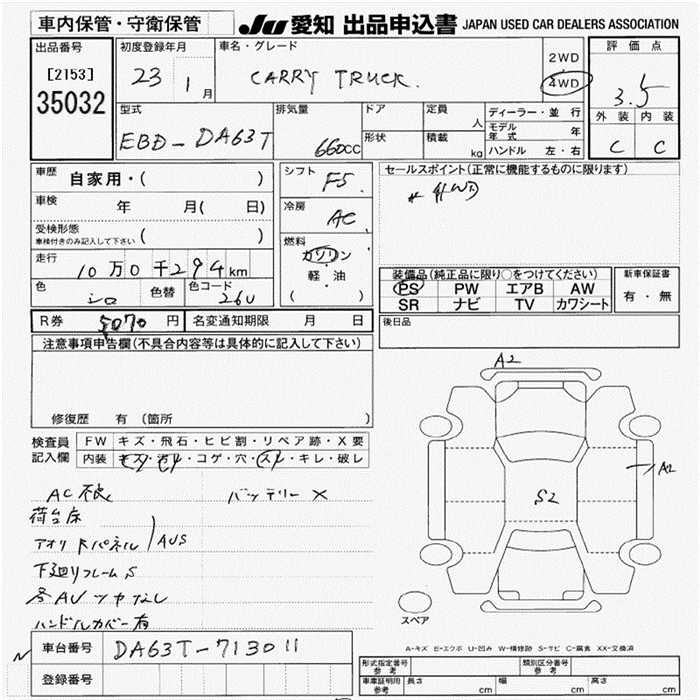 車内保管・守衛保管
JU 愛知 出品申込書 JAPAN USED CAR DEALERS ASSOCIATION
出品番号
[2153]
35032
初度登録年月
23 1月
車名・グレード
CARRY TRUCK.
2WD
4WD
評価点
3.5
外装 内装
C C
型式
EBD-DA63T
排気量
660cc
ドア
形状
定員 人
積載 kg
ディーラー・並行
モデル年式 年
ハンドル 左・右
車歴 自家用・( )
車検 年 月( 日)
受検形態
車検付きのみ記入して下さい ( )
走行 10万0千294km
色 シロ 色替 色コード 26U
シフト F5
冷房 AC
燃料
ガソリン
軽・油
( )
セールスポイント(正常に機能するものに限ります)
装備品(純正品に限り○をつけてください)
PS PW エアB AW
SR ナビ TV カワシート
新車保証書
有・無
後日品
R券 5070円 名変通知期限 月 日
注意事項申告欄(不具合内容等は具体的に記入して下さい)
修復歴 有(箇所 )
検査員記入欄
FW キズ・飛石・ヒビ割・リペア跡・X要
内装 キズ・汚レ・コゲ・穴・スレ・キレ・破レ
AC不良 バッテリーX
荷台床
アオリ 下パネル AUS
下廻りフレームS
各AUツヤなし
ハンドルカバー有
A2
A2
S2
スペア
A-キズ E-エクボ U-凹み W-補修跡 S-サビ C-腐食 XX-交換済
車台番号 DA63T-713011
登録番号
形式指定番号 参考
類別区分番号 参考
車庫証明用 参考 長さ cm 幅 cm 高さ cm